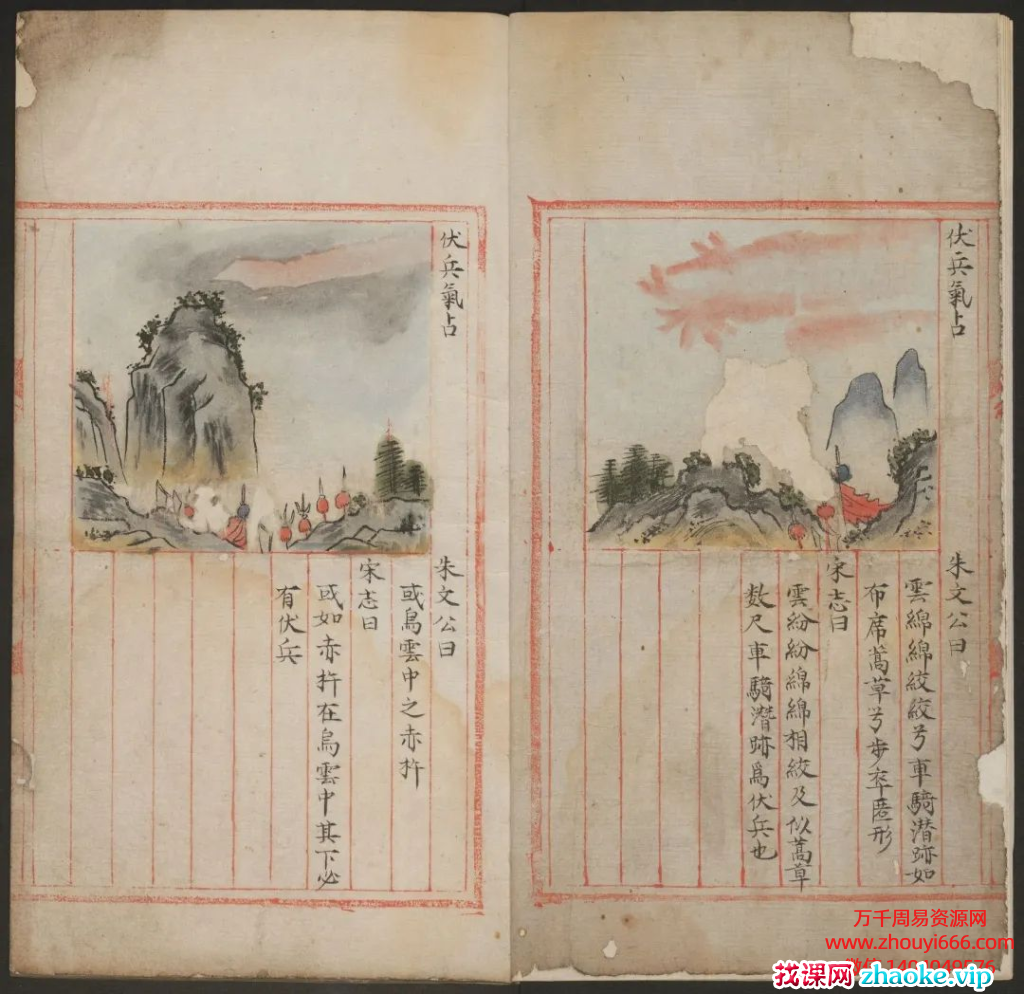 伏兵氣占
朱文公曰
雲綿綿絞絞兮車騎潛跡如
布席蒿草兮步卒匿形
宋志曰
雲紛紛綿綿相絞及似蒿草
数尺車騎潛跡爲伏兵也
伏兵氣占
朱文公曰
或烏雲中之赤杵
宋志曰
或如赤杵在烏雲中其下必
有伏兵
万千周易资源网
www.zhouyi666.com
找课网 zhaoke.vip